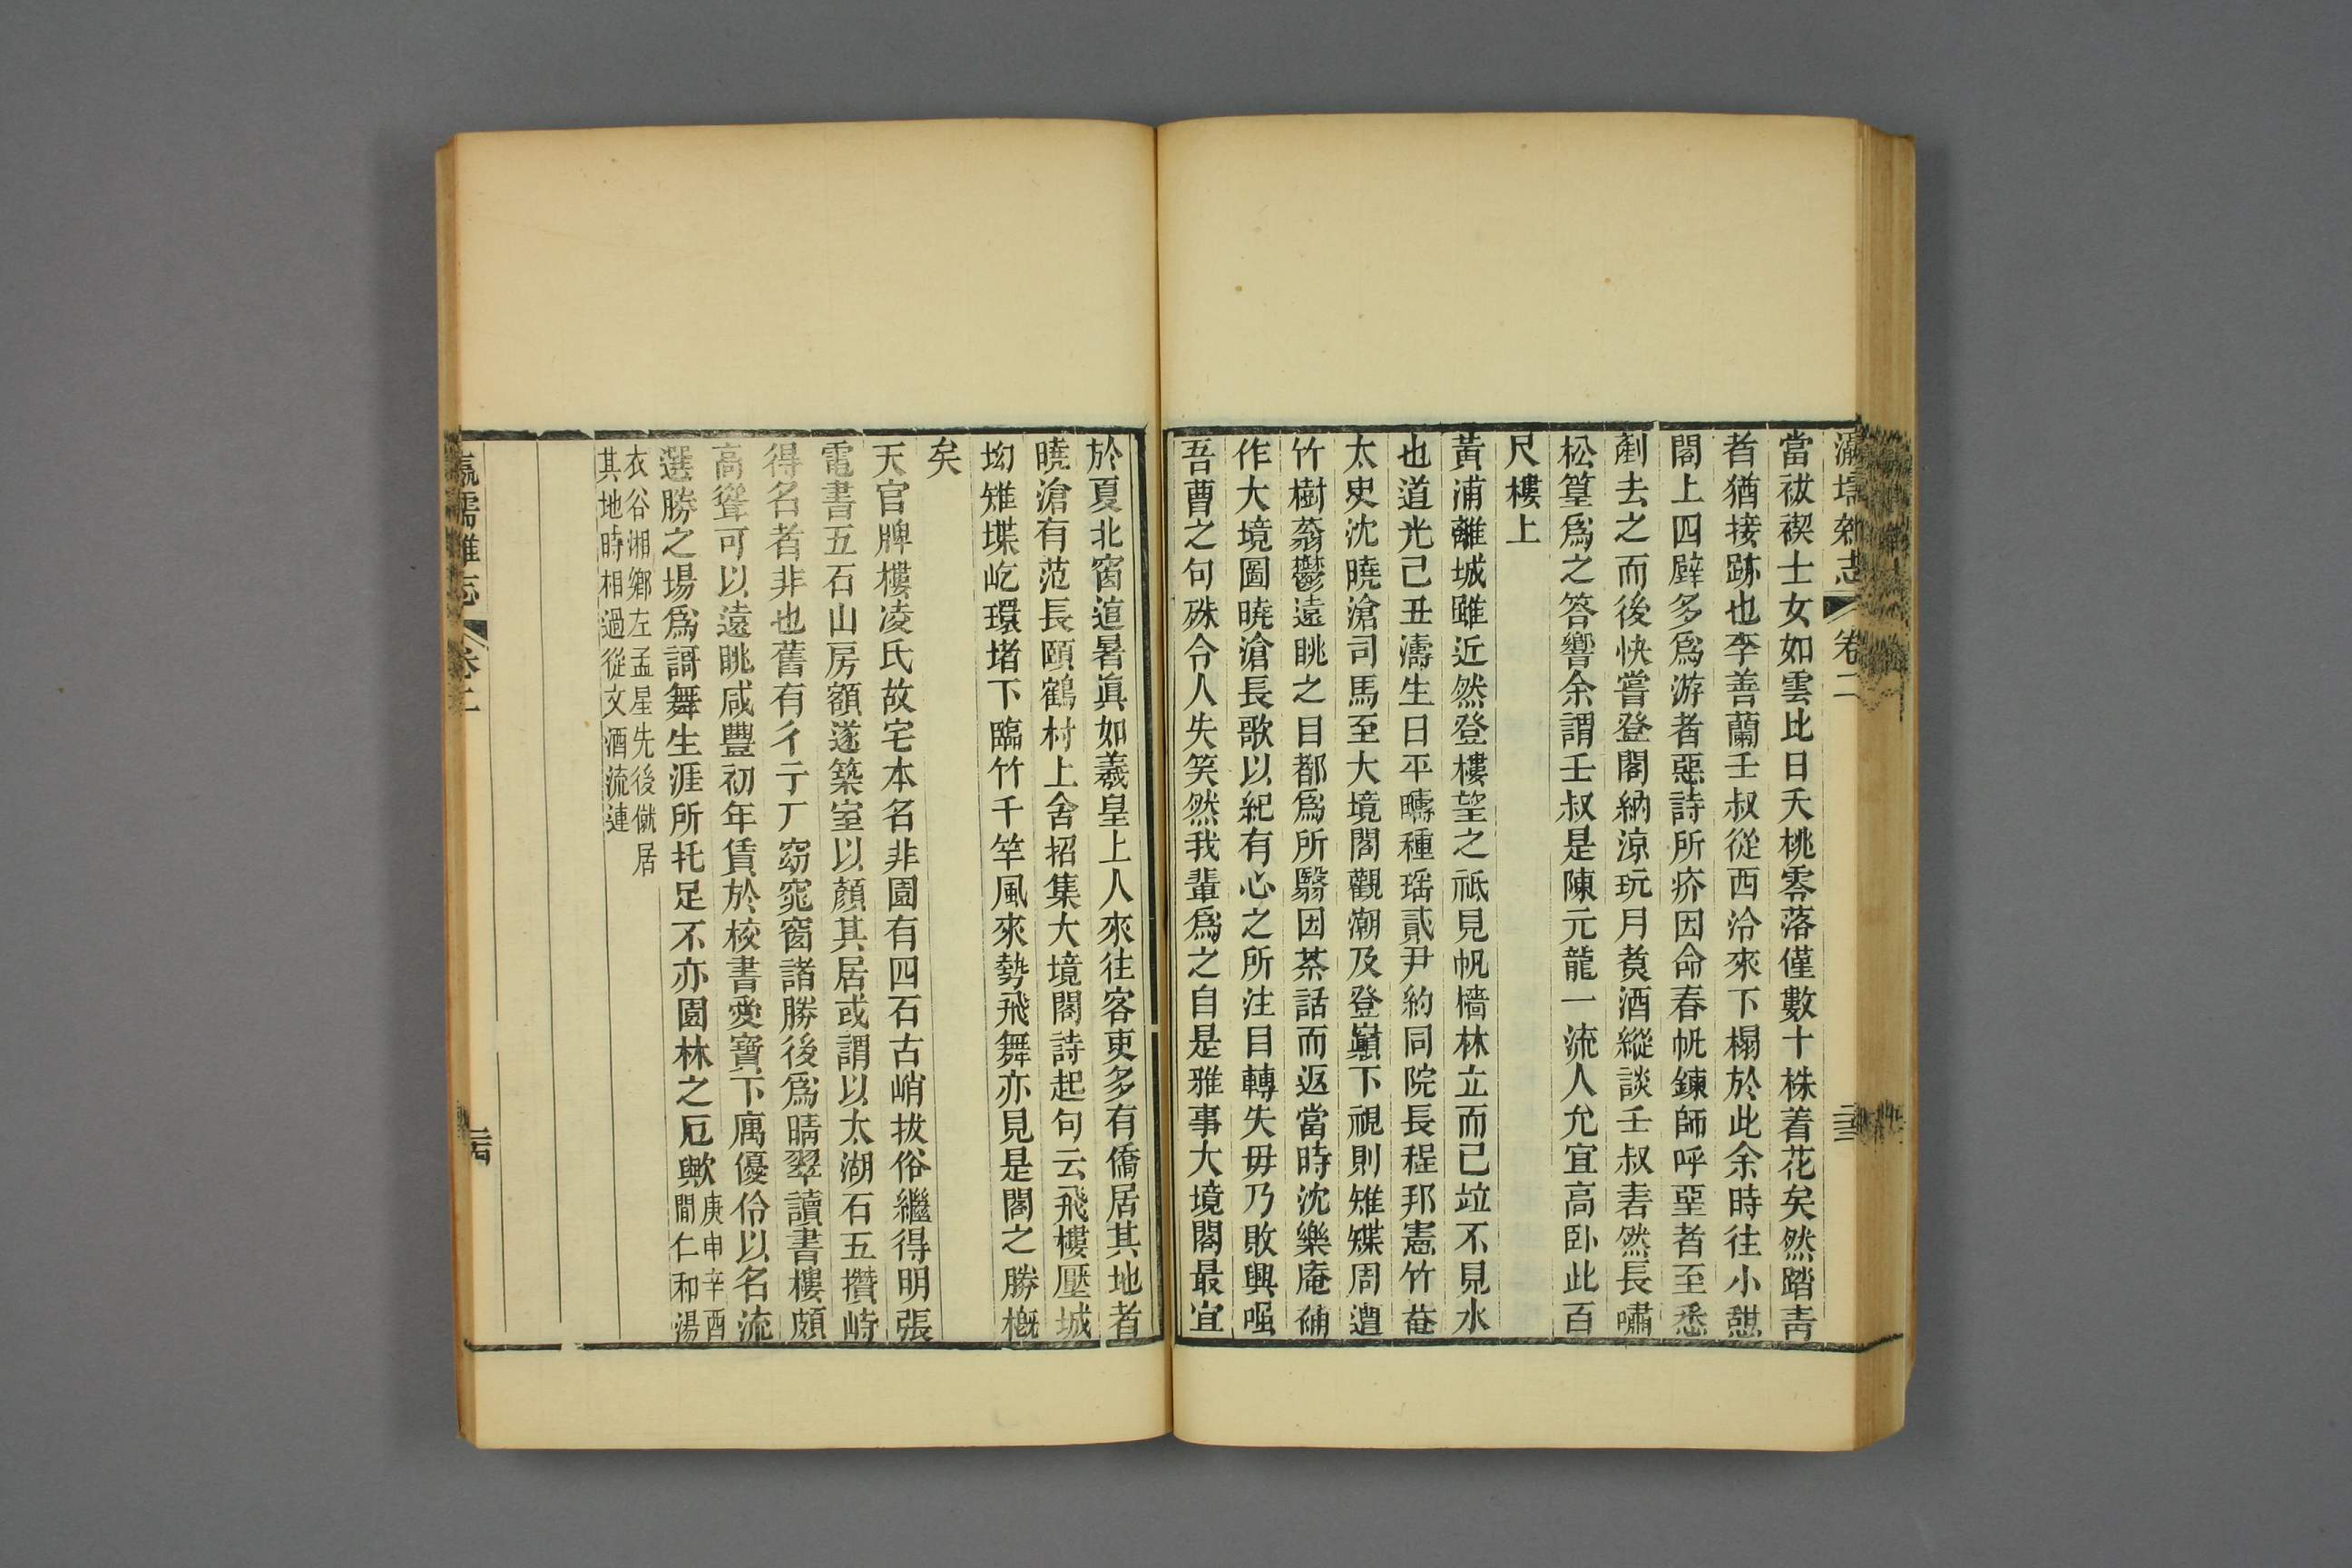 瀛壖雜志 卷二 二十三
當祓禊士女如雲比日夭桃零落僅數十株着花矣然踏青
者猶接跡也李善蘭壬叔從西泠來下榻於此余時往小憩
閣上四壁多爲游者惡詩所疥因命春帆鍊師呼堊者至悉
剷去之而後快嘗登閣納涼玩月煑酒縱談壬叔砉然長嘯
松篁爲之答響余謂壬叔是陳元龍一流人允宜高臥此百
尺樓上
黃浦離城雖近然登樓望之祗見帆檣林立而已竝不見水
也道光己丑濤生日平疇種瑶貳尹約同院長程邦憲竹菴
太史沈曉滄司馬至大境閣觀潮及登巓下視則雉堞周遭
竹樹蓊鬱遠眺之目都爲所翳因茶話而返當時沈樂庵補
作大境圖曉滄長歌以紀有心之所注目轉失毋乃敗興嗤
吾曹之句殊令人失笑然我輩爲之自是雅事大境閣最宜
於夏北窗逭暑眞如羲皇上人來往客吏多有僑居其地者
曉滄有范長頤鶴村上舍招集大境閣詩起句云飛樓壓城
坳雉堞屹環堵下臨竹千竿風來勢飛舞亦見是閣之勝槪
矣
天官牌樓凌氏故宅本名非園有四石古峭拔俗繼得明張
電書五石山房額遂築室以顏其居或謂以太湖石五攢峙
得名者非也舊有彳亍厂窈窕窗諸勝後爲晴翠讀書樓頗
高聳可以遠眺咸豐初年賃於校書愛寶下廡優伶以名流
選勝之場爲謌舞生涯所托足不亦園林之厄歟庚申辛酉
間仁和湯
衣谷湘鄉左孟星先後僦居
其地時相過從文酒流連
瀛壖雜志 卷二 二十四